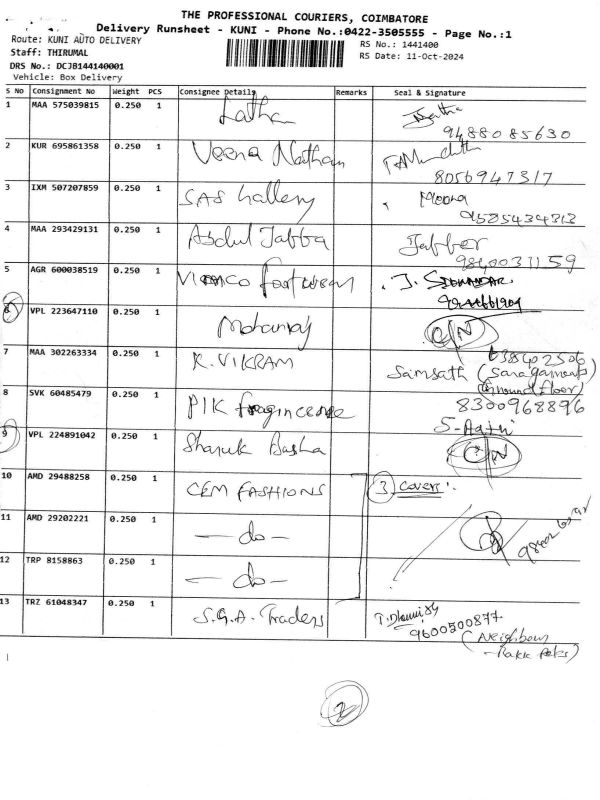 THE PROFESSIONAL COURIERS, COIMBATORE
Delivery Runsheet - KUNI - Phone No.:0422-3505555 - Page No.:1
Route: KUNI AUTO DELIVERY
RS No.: 1441400
Staff: THIRUMAL
RS Date: 11-Oct-2024
DRS No.: DCJB144140001
Vehicle: Box Delivery
S No Consignment No Weight PCS Consignee Details Remarks Seal & Signature
1 MAA 575039815 0.250 1 Latha
9488085630
2 KUR 695861358 0.250 1 Veena Nathan
8056947317
3 IXM 507207859 0.250 1 SAS Gallery Meena
9585434313
4 MAA 293429131 0.250 1 Abdul Jabba Jabber
9840031159
5 AGR 600038519 0.250 1 footwear J.
6 VPL 223647110 0.250 1 Mohanraj C/N
7 MAA 302263334 0.250 1 K. VIKRAM 638402506
Samsath (Sara garments
Ground floor)
8 SVK 60485479 0.250 1 PIK 8300968896
9 VPL 224891042 0.250 1 Sharuk Basha C/N
10 AMD 29488258 0.250 1 CEM FASHIONS 3 covers
11 AMD 29202221 0.250 1 - do -
12 TRP 8158863 0.250 1 - do -
13 TRZ 61048347 0.250 1 S.G.A. Traders
9600500877
(Neighbour